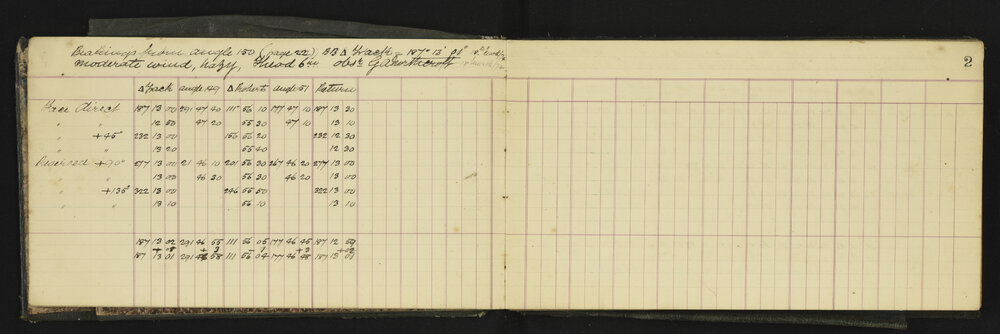 2
Bearings from angle 150 (page 22) BB Δ Track - 187° 13' 01"
moderate wind, hazy, Theod 6in obsr
Δ Track angle 149 Δ Roberts angle 151 Return
Face direct 187 13 00 291 47 40 111 56 10 177 47 10 187 13 20
" " 12 50 47 20 55 30 47 10 13 10
" +45° 232 13 00 156 56 20 232 12 30
" " 13 20 55 40 12 30
Reversed +90° 277 13 00 21 46 10 201 56 30 267 46 20 277 13 00
" " 13 00 46 30 55 30 46 20 13 00
" +135° 322 13 00 246 55 50 322 13 00
" " 13 10 56 10 13 10
187 13 02 291 46 55 111 56 05 177 46 45 187 12 59
+ 3 - 1 + 3 + 02
187 13 01 291 46 58 111 56 04 177 46 48 187 13 01